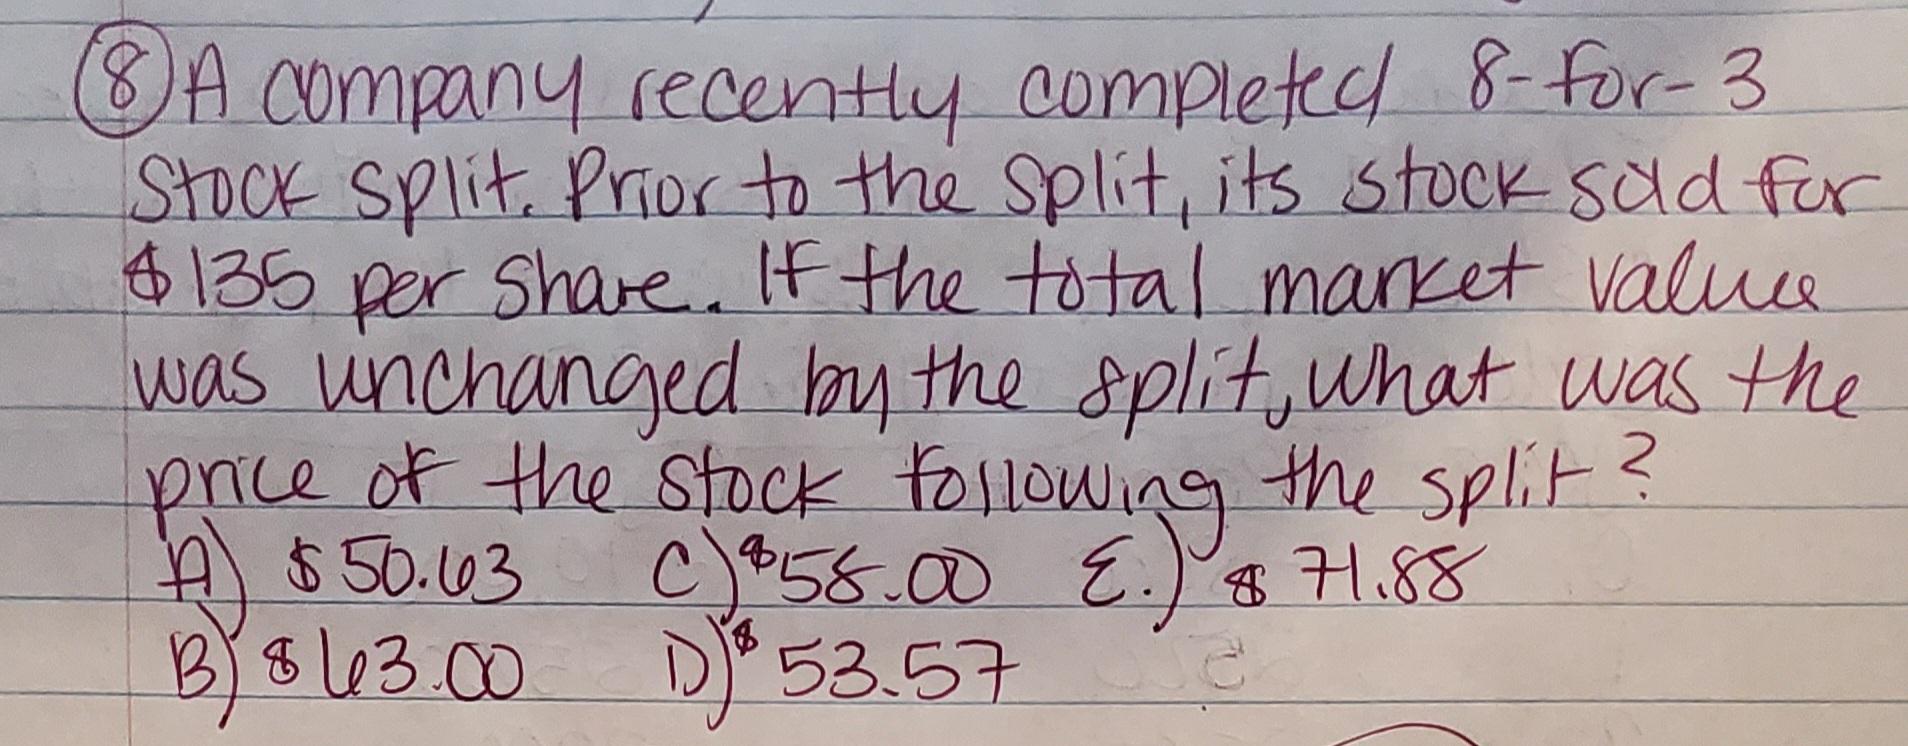 8 A company recently completed 8-for-3
Stock split. Prior to the split, its stock sold for
$135 per share. If the total market value
was unchanged by the split, what was the
price of the stock following the split?
A) $50.63 C) $58.00 E.) $71.88
B) $63.00 D) $53.57